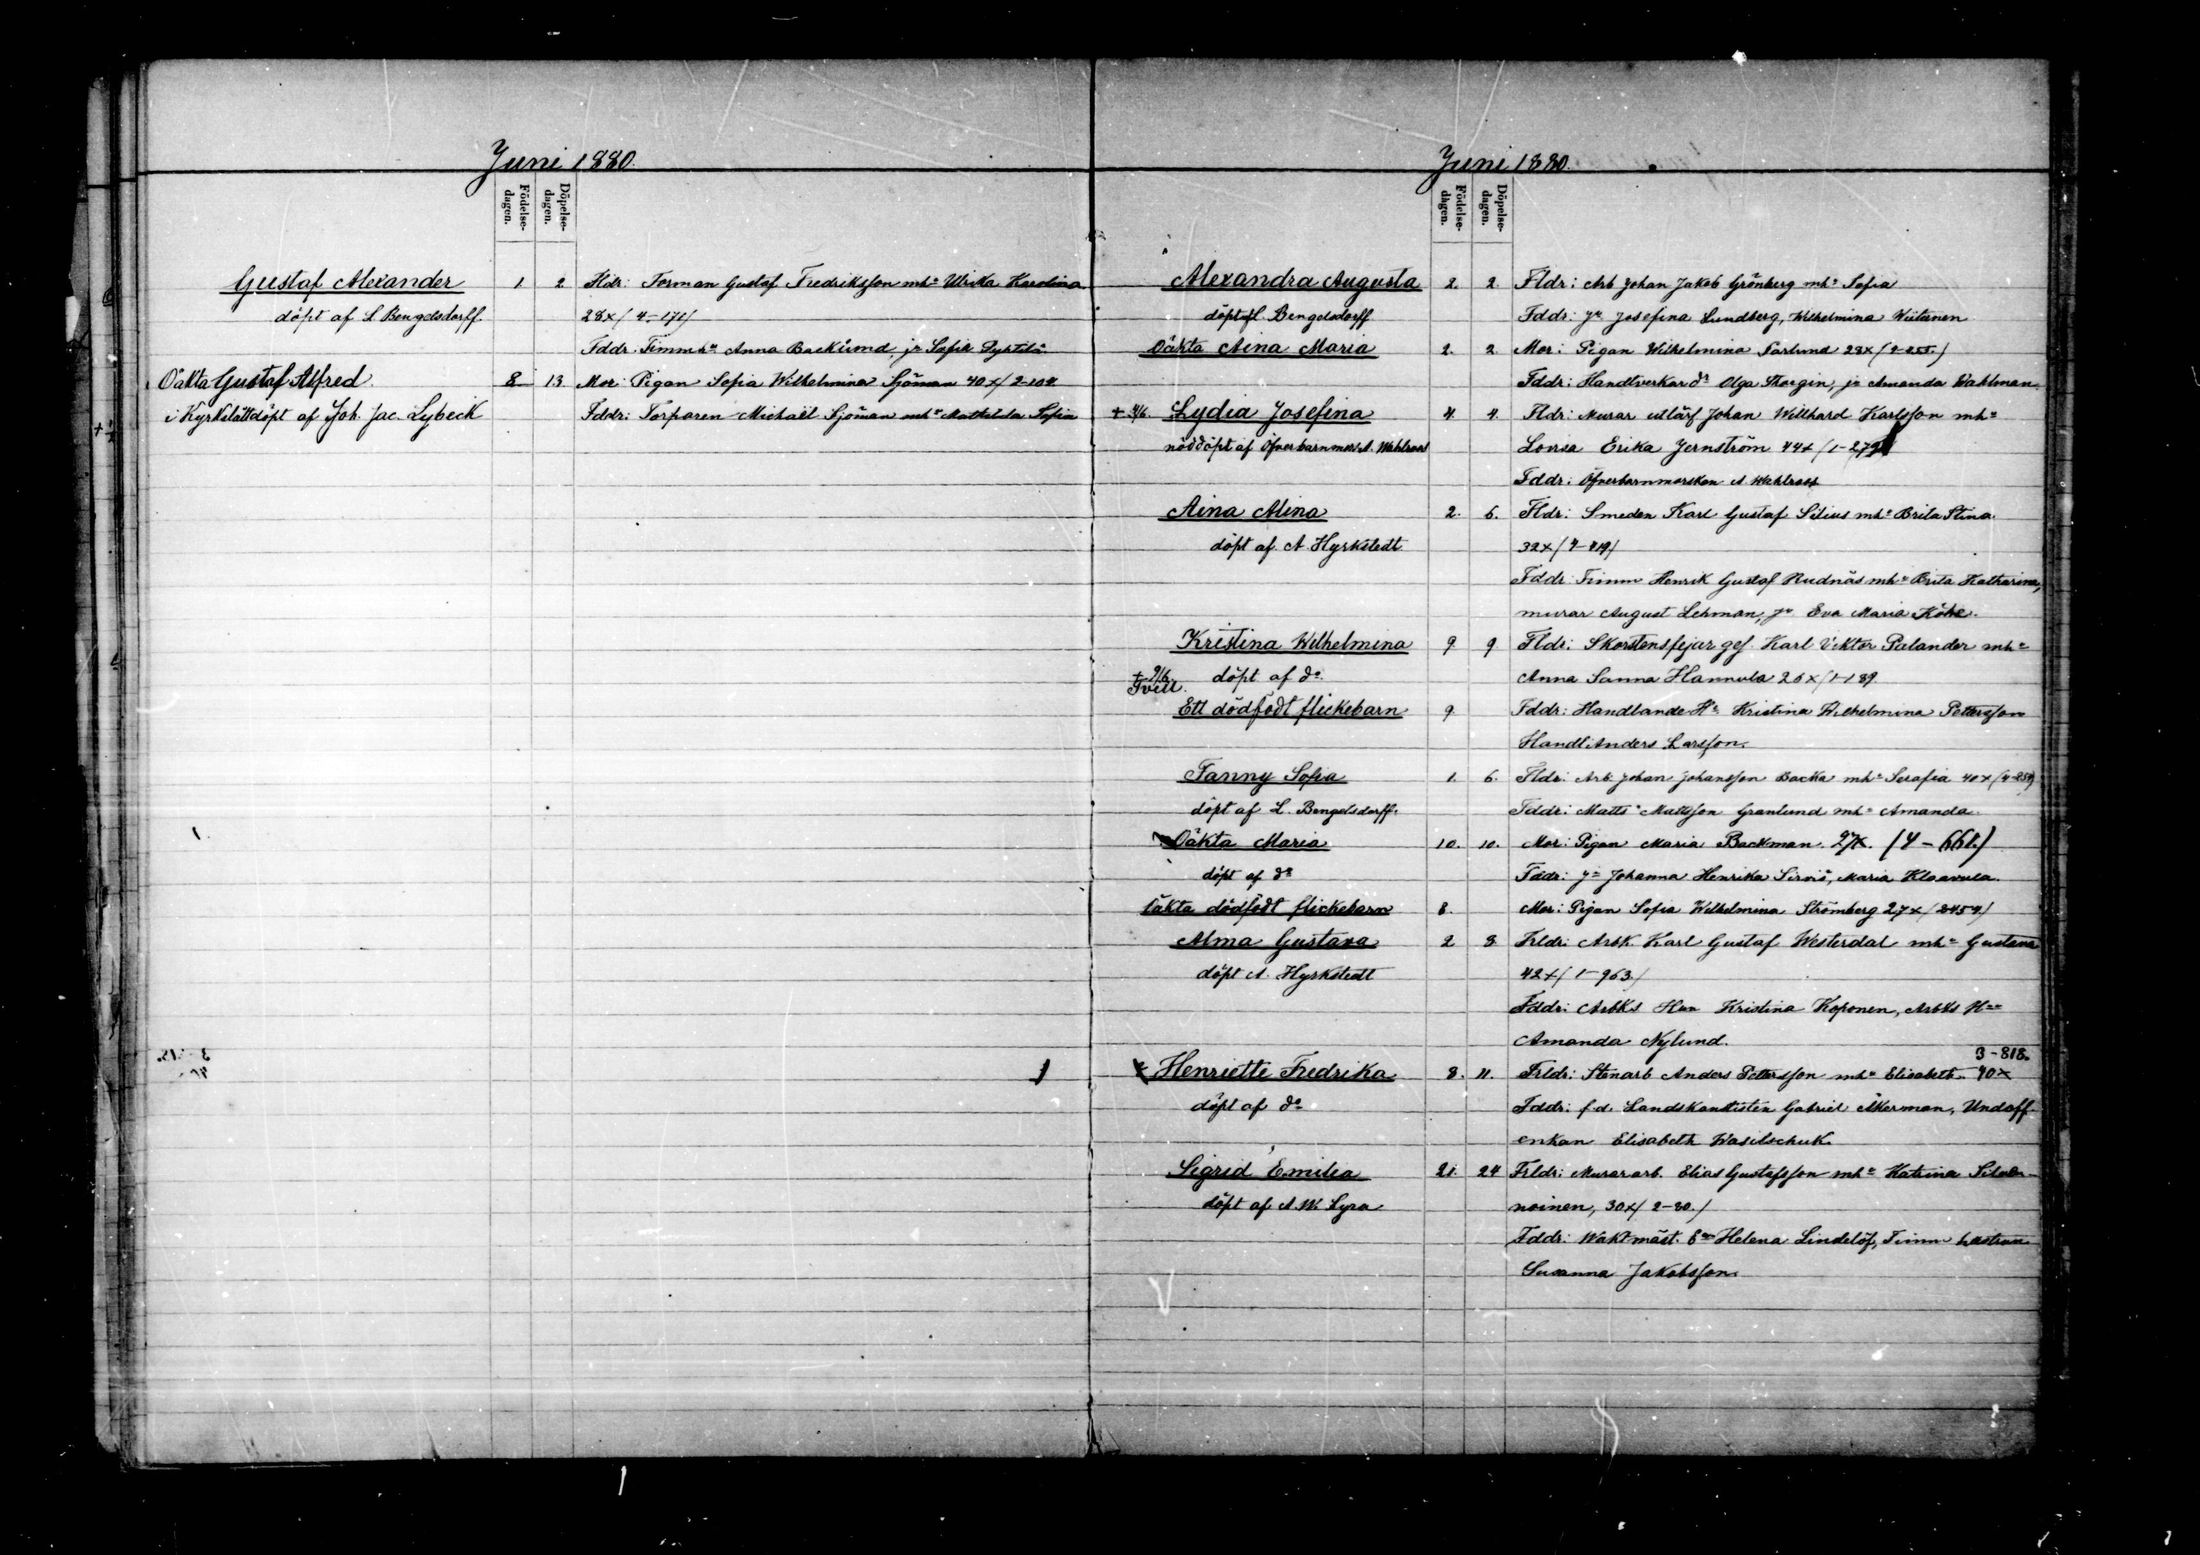 Juni 1880.
Födelse-dagen. Döpelse-dagen.
Gustaf Alexander 1 2 Fldr: Forman Gustaf Fredriksson mhu Ulrika Karolina
döpt af L Bengelsdorff 28x/4-171/
Fddr. Timmhu Anna Backlund, jr Sofia
Oäkta Gustaf Alfred 8 13 Mor: Pigan Sofia Wilhelmina Sjöman 40x/2-104
i Kyrkslätt döpt af Joh. Jac. Lybeck Fddr: Torparen Michaël Sjöman mhu Mathilda Sofia
Juni 1880.
Födelse-dagen. Döpelse-dagen.
Alexandra Augusta 2. 2. Fldr: Arb Johan Jakob Grönberg mhu Sofia
döpt af L. Bengelsdorff Fddr: Jn Josefina Lundberg, Wilhelmina Wiitanen
Oäkta Aina Maria 2. 2. Mor: Pigan Wilhelmina Parlund 28x/2-255/
Fddr: Handtverkar dr Olga Thorgin, jr Amanda Wahlman
+ 4/6. Lydia Josefina 4. 4. Fldr: Murar utlärl Johan Willhard Karlsson mhu
nöddöpt af Öfverbarnmor. A. Wahlroos Lovisa Erika Jernström 44x/1-279
Fddr: Öfverbarnmorskan A Wahlroos
Aina Alina 2. 6. Fldr: Smeden Karl Gustaf Silius mhu Brita Stina.
döpt af. A. Hyrkstedt. 32x/4-419/
Fddr: Timm Henrik Gustaf Rudnäs mhu Brita Katharina,
murar August Lehman, jr Eva Maria
Kristina Wilhelmina 9 9 Fldr: Skorstensfejar gef. Karl Viktor Palander mhu
+ 9/6 döpt af do. Anna Sanna Hannula 26x/1-189.
Tvill.
Ett dödfödt flickebarn 9 Fddr: Handlande Hu Kristina Wilhelmina Pettersson
Handl Anders Larsson.
Fanny Sofia 1. 6. Fldr: Arb Johan Johansson Backa mhu Serafia 40x/4-254/
döpt af L. Bengelsdorff. Fddr: Matts Mattsson Granlund mhu Amanda.
Oäkta Maria 10. 10. Mor: Pigan Maria Backman. 27x. (4-661.)
döpt af do Fddr: Jn Johanna Henrika Sirviö, Maria Klaavula.
Oäkta dödfödt flickebarn 8. Mor: Pigan Sofia Wilhelmina Strömberg 27x/2-454/
Alma Gustava 2 8 Frldr: Arbk. Karl Gustaf Westerdal mhu Gustava
döpt A. Hyrkstedt 42x/1-963./
Fddr: Arbks Hun Kristina Koponen, Arbks Hun
Amanda Nylund.
3-818.
Henriette Fredrika 8. 11. Frldr: Stenarb Anders Pettersson mhu Elisabeth 40x
döpt af do Fddr: f.d. Landskanslisten Gabriel Åkerman, Undoff.
enkan Elisabeth Wasilschuk.
Sigrid Emilia 21. 24 Frldr: Murararb. Elias Gustafsson mhu Katrina
döpt af A. W. Lyra noinen, 30x/2-20./
Fddr: Waktmäst. Helena Lindelöf, Timm
Susanna Jakobsson.